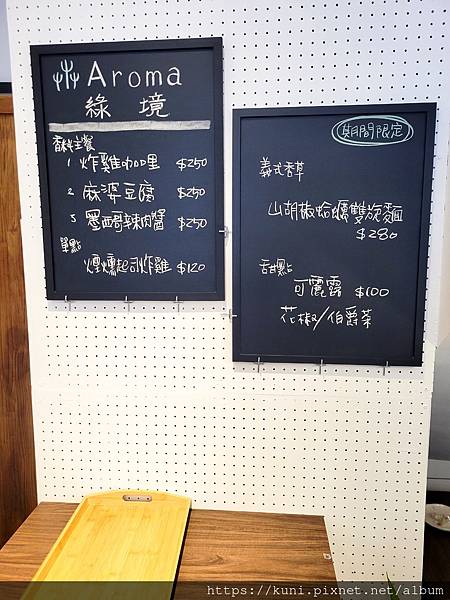 Aroma
綠境
香料主餐
1. 炸雞咖哩 $250
2. 麻婆豆腐 $250
3. 墨西哥辣肉醬 $250
單點
煙燻起司炸雞 $120
期間限定
義式香草
山胡椒蛤蠣雙旋麵
$280
甜點
可麗露 $100
花椒/伯爵茶
https://kuni.pixnet.net/album